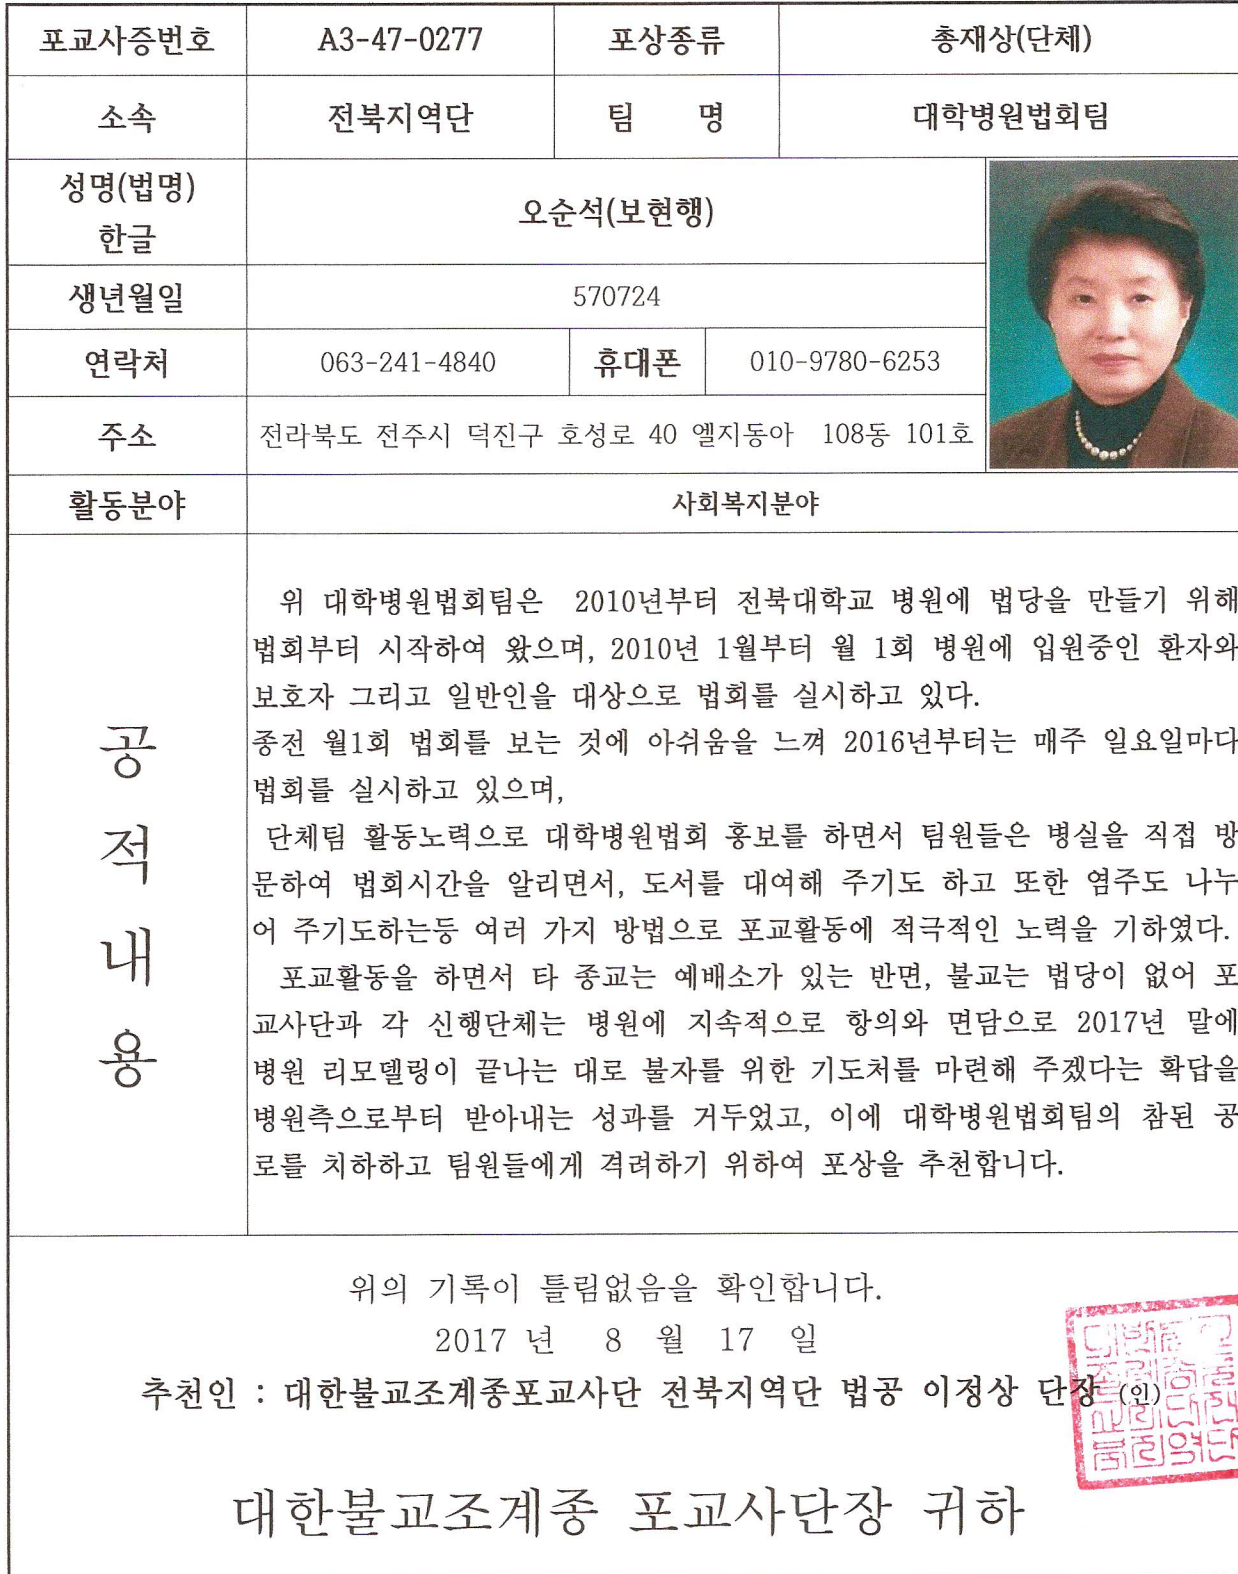 포교사증번호 A3-47-0277 포상종류 총재상(단체)
소속 전북지역단 팀 명 대학병원법회팀
성명(법명)
한글
오순석(보현행)
생년월일 570724
연락처 063-241-4840 휴대폰 010-9780-6253
주소 전라북도 전주시 덕진구 호성로 40 엘지동아 108동 101호
활동분야 사회복지분야
공
적
내
용
위 대학병원법회팀은 2010년부터 전북대학교 병원에 법당을 만들기 위해
법회부터 시작하여 왔으며, 2010년 1월부터 월 1회 병원에 입원중인 환자와
보호자 그리고 일반인을 대상으로 법회를 실시하고 있다.
종전 월1회 법회를 보는 것에 아쉬움을 느껴 2016년부터는 매주 일요일마다
법회를 실시하고 있으며,
단체팀 활동노력으로 대학병원법회 홍보를 하면서 팀원들은 병실을 직접 방
문하여 법회시간을 알리면서, 도서를 대여해 주기도 하고 또한 염주도 나누
어 주기도하는등 여러 가지 방법으로 포교활동에 적극적인 노력을 기하였다.
포교활동을 하면서 타 종교는 예배소가 있는 반면, 불교는 법당이 없어 포
교사단과 각 신행단체는 병원에 지속적으로 항의와 면담으로 2017년 말에
병원 리모델링이 끝나는 대로 불자를 위한 기도처를 마련해 주겠다는 확답을
병원측으로부터 받아내는 성과를 거두었고, 이에 대학병원법회팀의 참된 공
로를 치하하고 팀원들에게 격려하기 위하여 포상을 추천합니다.
위의 기록이 틀림없음을 확인합니다.
2017 년 8 월 17 일
추천인 : 대한불교조계종포교사단 전북지역단 법공 이정상 단장 (인)
대한불교조계종 포교사단장 귀하